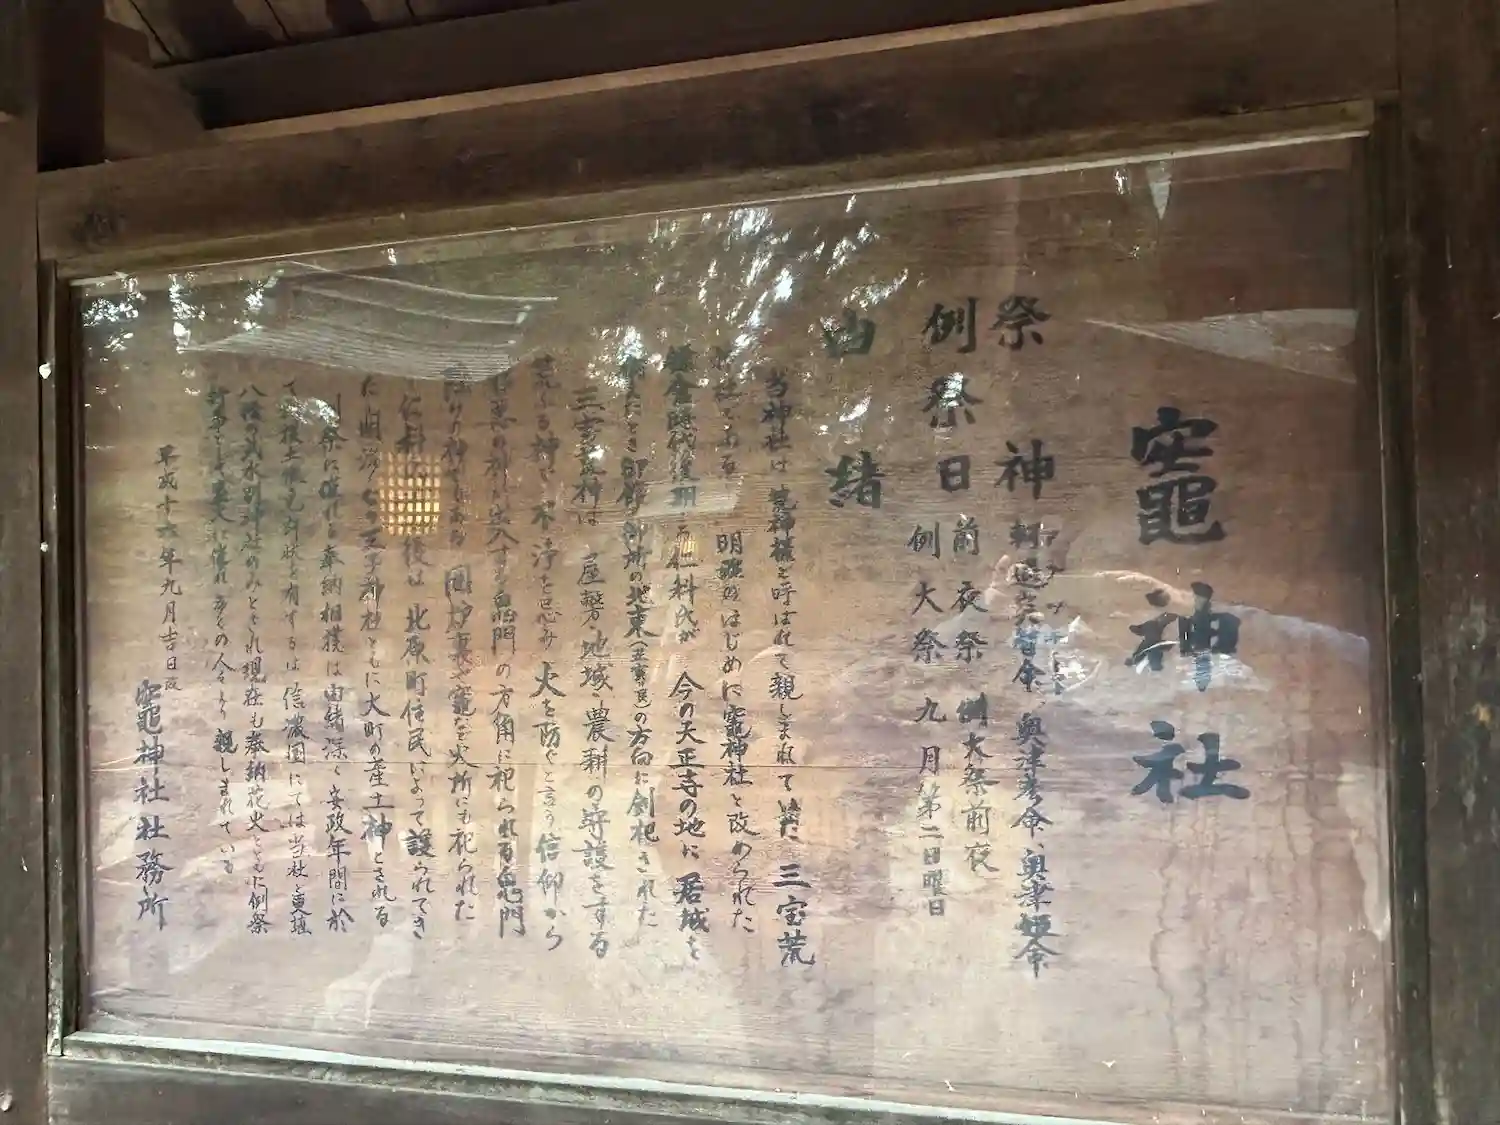 竈神社
祭神 軻遇突智命、奥津彦命、奥津姫命
例祭日 前夜祭 例大祭前夜
例大祭 九月第二日曜日
由緒
当神社は荒神様と呼ばれて親しまれて 三宝荒
社である 明治のはじめに竈神社と改められた
鎌倉時代後期 仁科氏が 今の天正寺の地に居城を
たとき 御所の地東 の方向に創祀された
三宝荒神は 屋敷、地域、農耕の守護をする
る神で 不浄を忌み 火を防ぐと言う信仰から
悪の神が出入する鬼門の方角に祀られる鬼門
神でもある 囲炉裏や竈など火所にも祀られた
仁科 後は 北原町住民によって護られてき
に明治 王子神社とともに大町の産土神とされる
例祭に催れる奉納相撲は由緒深く 安政年間に於
て 根土俵免許状を有するは 信濃国にては当社と更埴
八幡の武水別神社のみとされ現在も奉納花火とともに例祭
行事として盛大に催れ 多くの人々より親しまれている
平成十六年九月吉日改
竈神社社務所